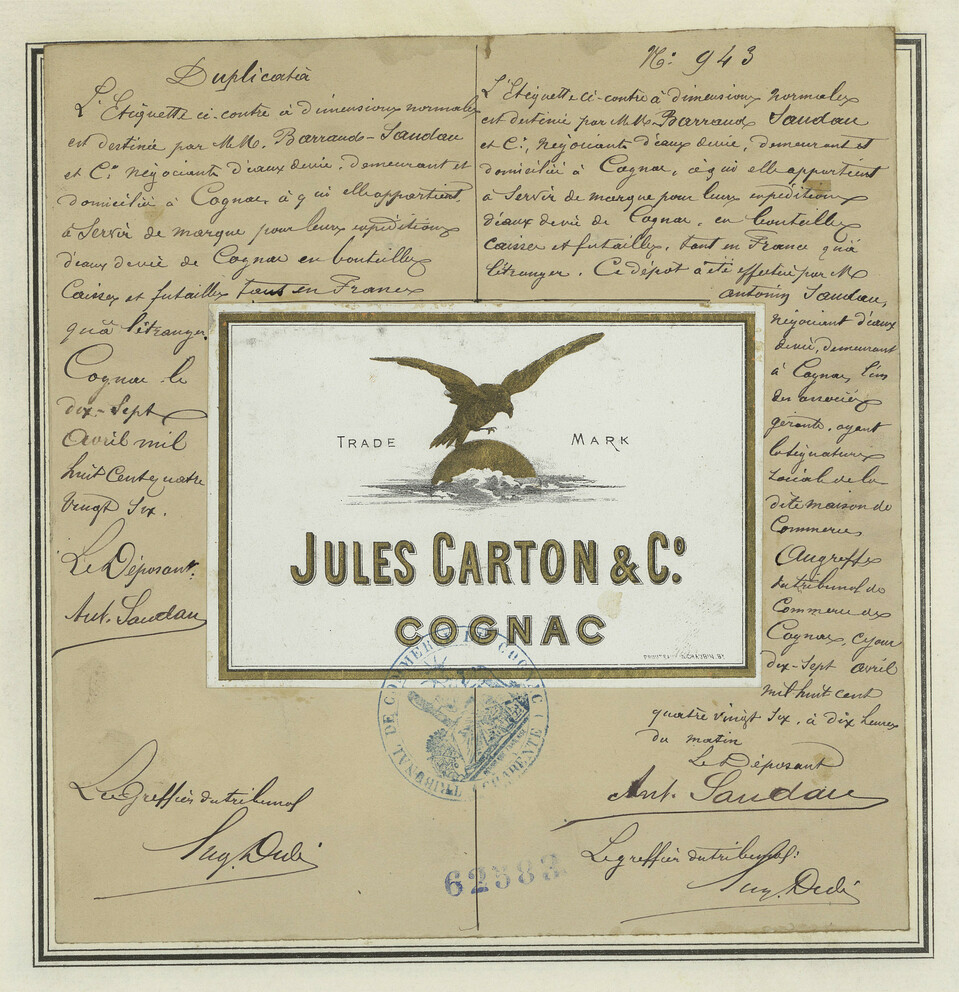 Duplicata
L'Etiquette ci-contre à dimensions normales
est destinée par MM. Barraud-Saudau
et Cie, Négociants d'eaux devie, demeurant et
domicilié à Cognac, à qui elle appartient,
à Servir de marque pour leurs expéditions
d'eaux devie de Cognac en bouteilles
Caisses et futailles tant en France
qu'à l'étranger
Cognac le
dix-Sept
Avril mil
huit Cent quatre
Vingt Six.
Le Déposant.
Ant. Saudau
Le greffier du tribunal
N: 943
L'Etiquette ci-contre à dimensions normales
est destinée par MM. Barraud Saudau
et Cie, négociants d'eaux devie, demeurant et
domicilié à Cognac, à qui elle appartient
à Servir de marque pour leurs expéditions
d'eaux devie de Cognac, en bouteilles
Caisses et futailles, tant en France qu'à
l'étranger. Ce dépôt a été effectué par M
antonin Saudau,
Négociant d'eaux
devie, demeurant
à Cognac, l'un
des associés
gérants, ayant
la signature
Sociale de la
dite maison de
Commerce
Au greffe
du tribunal de
Commerce de
Cognac, ce jour
dix-Sept avril
mil huit cent
quatre vingt Six, à dix heures
du matin
Le Déposant
Ant. Saudau
Le greffier du tribunal:
TRADE MARK
JULES CARTON & Co.
COGNAC
TRIBUNAL DE COMMERCE DE COGNAC (CHARENTE)
62583